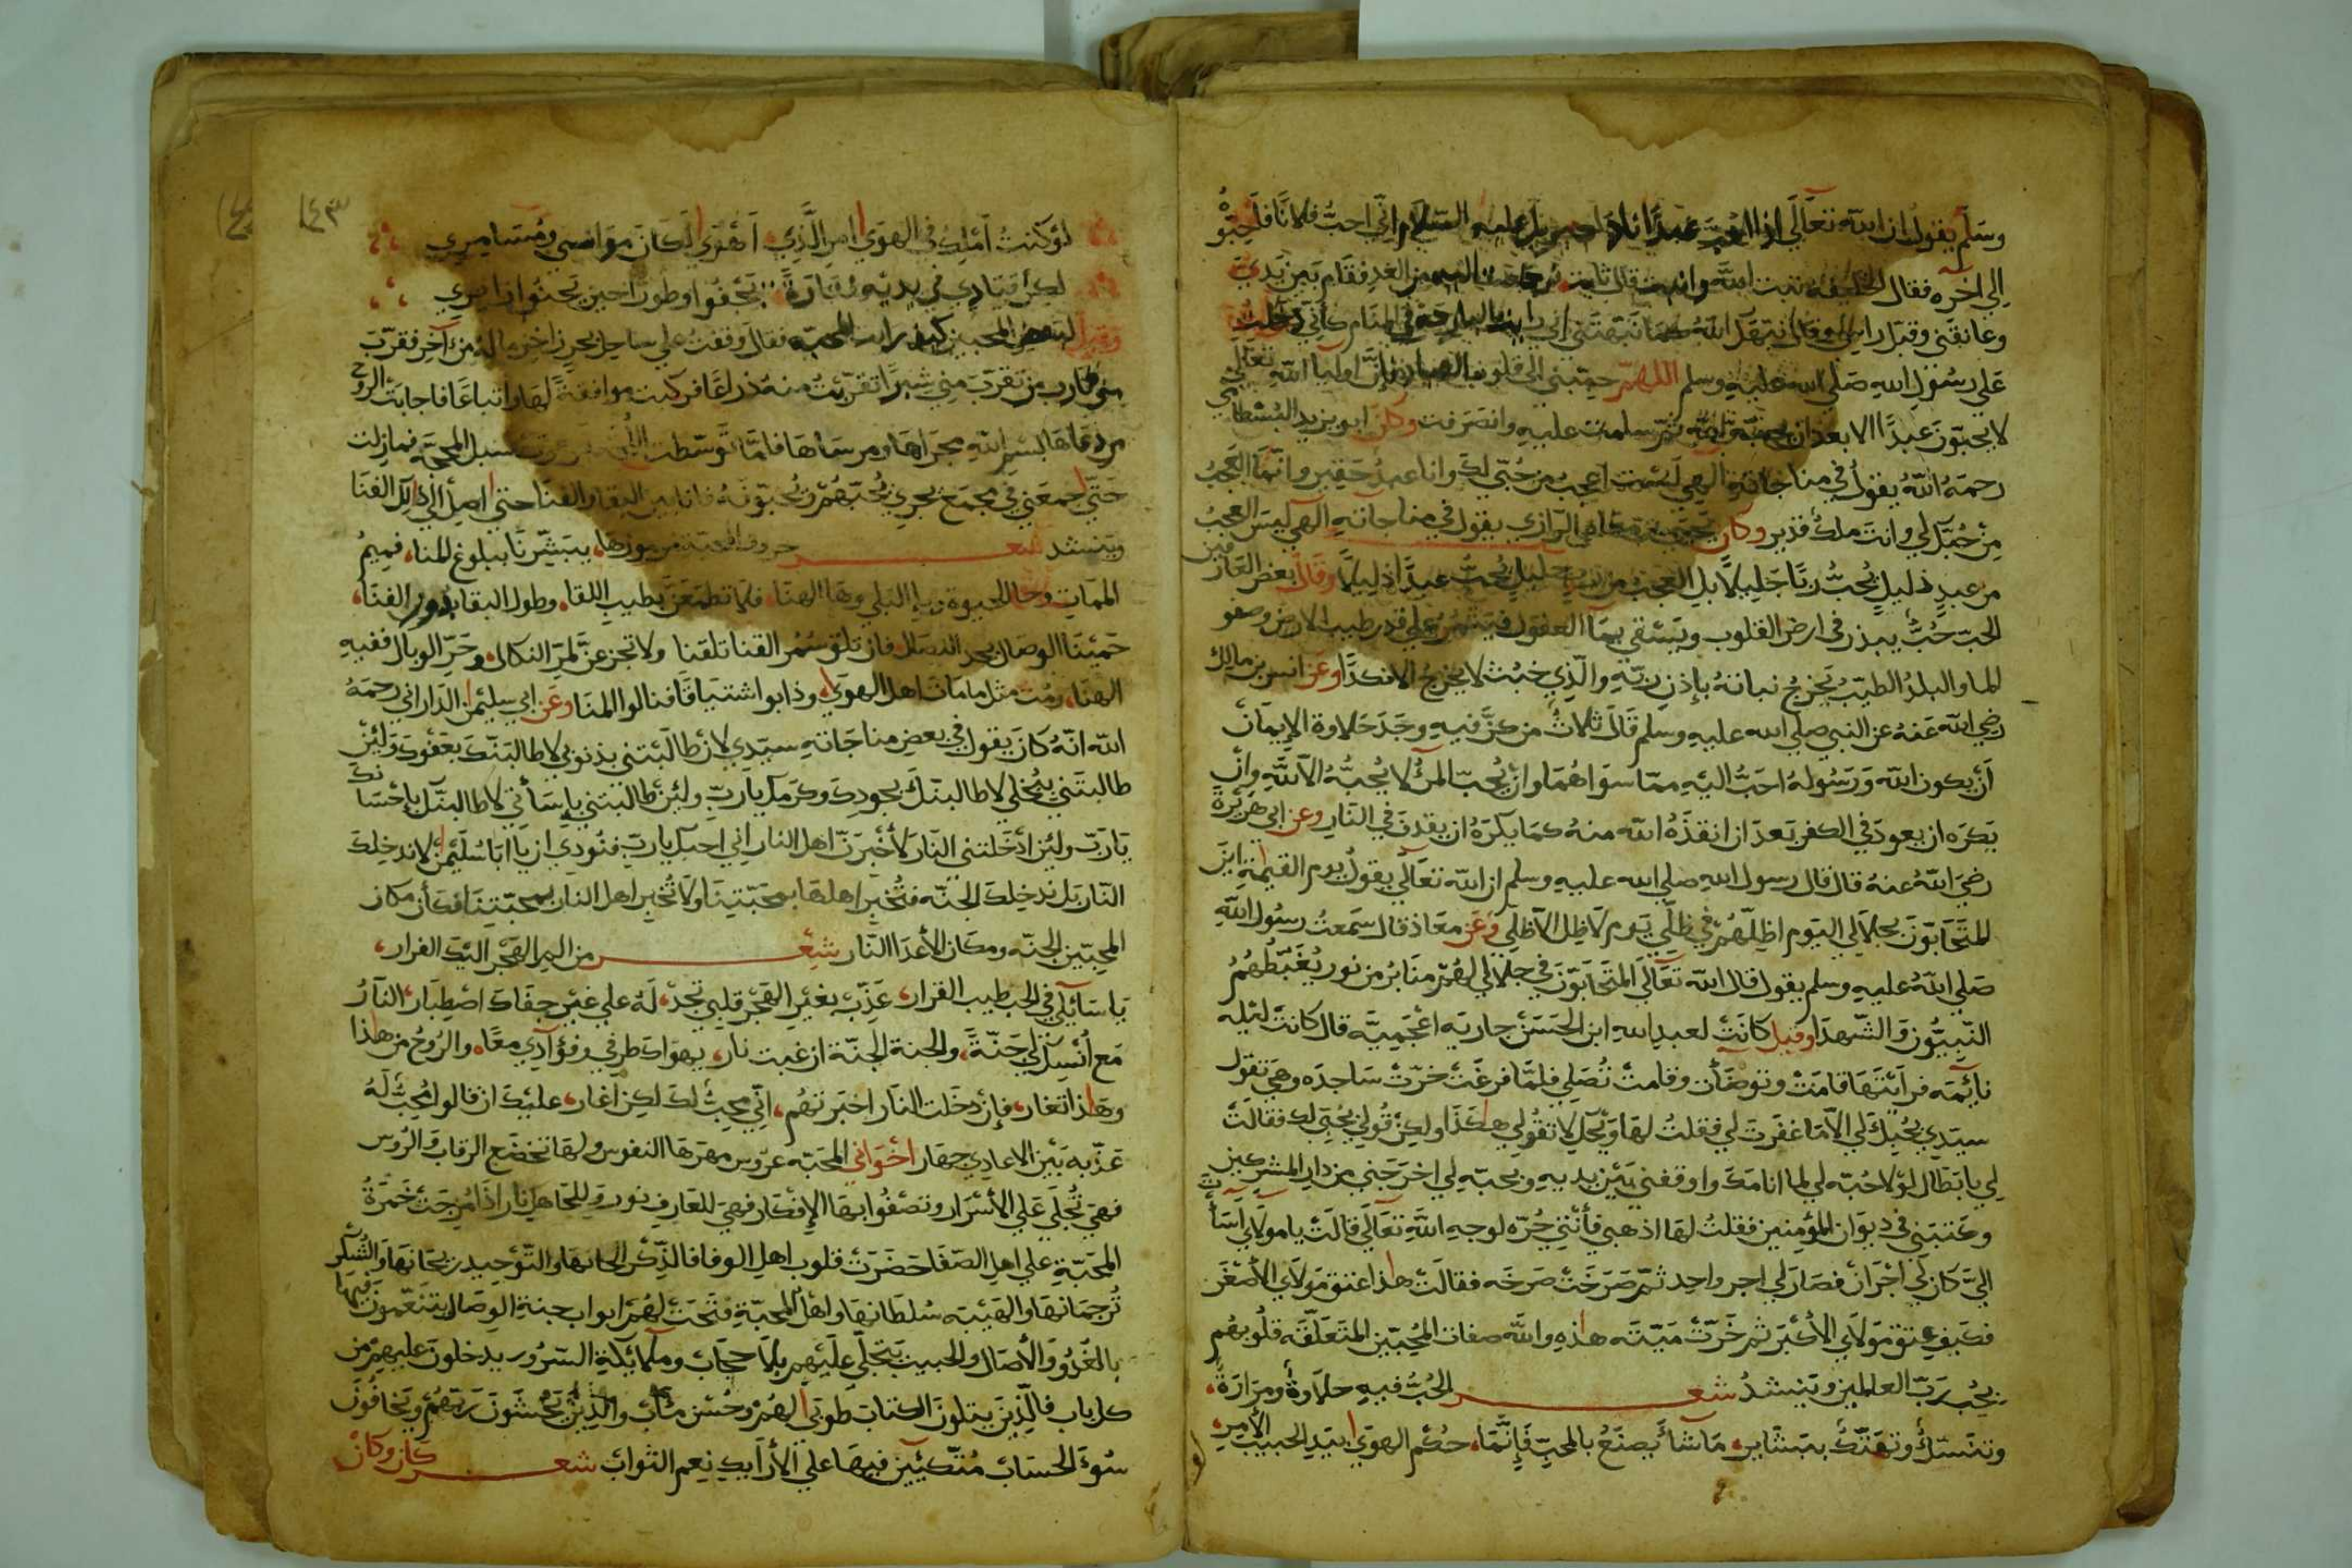 وسلم يقول ان الله تعالى اذا احب عبدا نادى جبريل عليه السلام اني احب فلانا فاحبوه
الى اخره فقال الخليفة تبت الله وانبت قال ثابت من الغد فقام بين يدي
وعانقني وقبل راسي وقال نبهك الله كما نبهتني اني رايت البارحة في المنام كأني دخلت
على رسول الله صلى الله عليه وسلم اللهم حببني الى قلوب فان اوليا الله تعالى
لا يحبون عبدا الا بعد ان يحبه الله ثم سلمت عليه وانصرفت وكان ابو يزيد البسطامي
رحمه الله يقول في مناجاته الهي لست اعجب من حبي لك وانا عبد حقير وانما العجب
من حبك لي وانت ملك قدير وكان يحيى بن معاذ الرازي يقول في مناجاته الهي ليس العجب
من عبد ذليل يحب ربا جليلا بل العجب من رب جليل يحب عبدا ذليلا وقال بعض العارفين
الحب حب يبذر في ارض القلوب ويسقى بما العقول فيثمر على قدر طيب الارض وصفو
الما والبلد الطيب يخرج نباته باذن ربه والذي خبث لا يخرج الا نكدا وعن انس بن مالك
رضي الله عنه عن النبي صلى الله عليه وسلم قال ثلاث من كن فيه وجد حلاوة الايمان
أن يكون الله ورسوله احب اليه مما سواهما وان يحب المرء لا يحبه الا لله وان
يكره ان يعود في الكفر بعد ان انقذه الله منه كما يكره ان يقذف في النار وعن ابي هريرة
رضي الله عنه قال قال رسول الله صلى الله عليه وسلم ان الله تعالى يقول يوم القيمة اين
المتحابون بجلالي اليوم اظلهم في ظلي يوم لا ظل الا ظلي وعن معاذ قال سمعت رسول الله
صلى الله عليه وسلم يقول قال الله تعالى المتحابون في جلالي لهم منابر من نور يغبطهم
النبيون والشهدا وقيل كانت لعبد الله ابن الحسن جاريه اعجميه قال كانت ليله
نايمه فرايتها قامت وتوضأت وقامت تصلي فلما فرغت خرت ساجده وهي تقول
سيدي بحبك لي الا ما غفرت لي فقلت لها ويحك لا تقولي هكذا ولكن قولي بحبي لك فقالت
لي يا بطال لولا حبه لي لما انامك واوقفني بين يديه وبحبه لي اخرجني من دار المشركين
وكتبني في ديوان المؤمنين فقلت لها اذهبي فأنت حره لوجه الله تعالى قالت يا مولاي اسأت
الي كان لي اجران فصار لي اجر واحد ثم صرخت صرخه فقالت هذا عتق مولاي الاصغر
فكيف عتق مولاي الاكبر ثم خرت ميته هذه والله صفات المحبين المتعلقه قلوبهم
بحب رب العالمين وينشد شعر الحب فيه حلاوة ومرارة
وتنسك وتهتك بشاير ما شأ يصنع بالمحب فانما حكم الهوى بيد الحبيب الامر
١٤٣
لو كنت املك في الهوى امر الذي اهوى لكان موانسي ومسامري
لكن قيادي في يديه وتارة يجفوا وطورا حين يحنوا زايري
وقيل لبعض المحبين كيف رايت المحبه فقال وقفت على ساحل بحر زاخر ما له من آخر فقرب
مني قارب من تقرب مني شبرا تقربت منه ذراعا فركبت موافقة لها واتباعا فاجابت الروح
من دعاها بسم الله مجراها ومرساها فلما توسطت سبل المحجة فما زلت
حتى اجمعني في مجمع بحري يحبهم ويحبونه فانا بين البقا والفنا حتى اصل الى ذلك الفنا
وينشد شعر حروف المحبة مرموزها يبشرنا ببلوغ المنا فميم
الممات وحا الحيوة وبا البلى وها الهنا فلا تطمعن بطيب اللقا وطول البقا بدون الفنا
حمينا الوصال بحد النصال فان تلق سمر القنا تلقنا ولا تجزعن لمر النكال وحر الوبال ففيه
الهنا ومت مثل ما مات اهل الهوى وذابوا اشتياقا فنالوا المنا وعن ابي سليمن الداراني رحمه
الله انه كان يقول في بعض مناجاته سيدي لان طالبتني بذنوبي لاطالبنك بعفوك ولئن
طالبتني ببخلي لاطالبنك بجودك وكرمك يا رب ولئن طالبتني باسأتي لاطالبنك باحسانك
يا رب ولئن ادخلتني النار لأخبرن اهل النار اني احبك يا رب فنودي ان يا ابا سليمن لا ندخلك
النار بل ندخلك الجنه فتخبر اهلها بمحبتنا ولا تخبر اهل النار بمحبتنا فكأن مكان
المحبين الجنه ومكان الاعدا النار شعر من اليم الهجر اليك الفرار
يا سايلي في الحب طيب القرار عذب بغير الهجر قلبي تجد له على غير جفاك اصطبار النار
مع انسك لي جنة والجنة الجنة ان غبت نار يهواك طرفي وفؤادي معا والروح من هذا
وهذا تغار فان دخلت النار اخبرتهم اني محب لك لكن اغار عليك ان قالوا محب له
عذبه بين الاعادي جهار اخواني المحبه عروس مهرها النفوس ولها تخضع الرقاب والروس
فهي تجلي على الأسرار وتصفوا بها الافكار فهي للعارف نور وللجاهل نار اذا مزجت خمرة
المحبة على اهل الصفا حضرت قلوب اهل الوفا فالذكر الحانها والتوحيد ريحانها والشكر
ترجمانها والهيبه سلطانها واهل المحبة فتحت لهم ابواب جنة الوصال يتنعمون فيها
بالغدو والآصال والحبيب يتجلى عليهم بلا حجاب وملائكة السرور يدخلون عليهم من
كل باب فالذين يتلون الكتاب طوبى لهم وحسن مآب والذين يخشون ربهم ويخافون
سوء الحساب متكئين فيها على الأرايك نعم الثواب شعر كان وكان